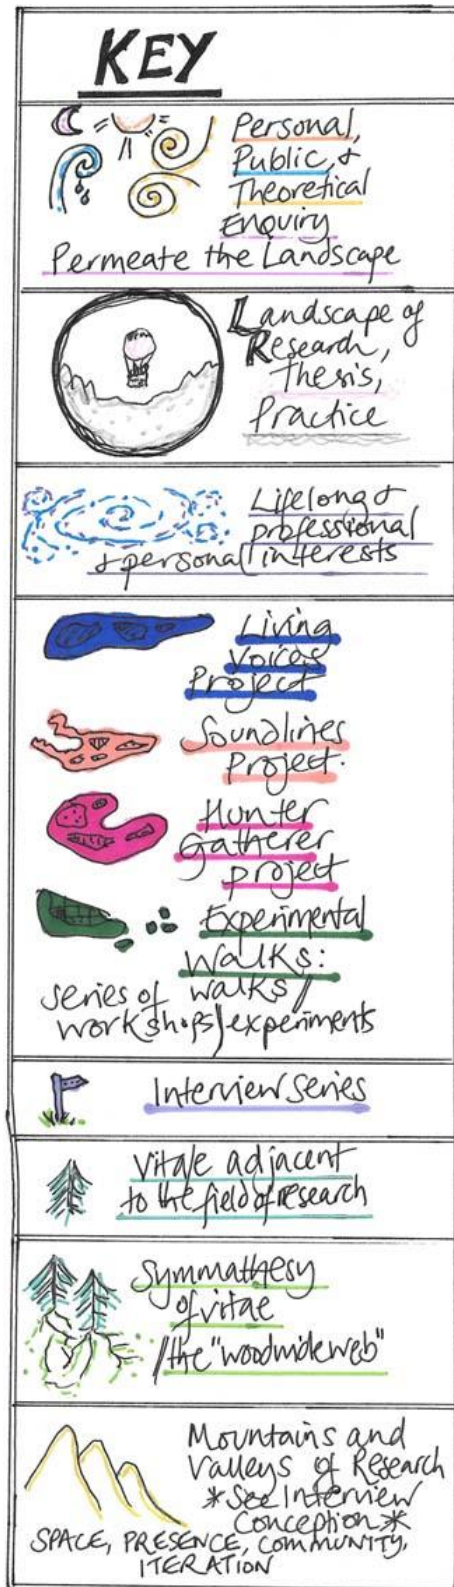 KEY
Personal,
Public, &
Theoretical
Enquiry
Permeate the Landscape
Landscape of
Research,
Thesis,
Practice
Lifelong &
professional
& personal interests
Living
Voices
Project
Soundlines
Project.
Hunter
Gatherer
project
Experimental
Walks:
series of walks /
workshops / experiments
Interview Series
Vitae adjacent
to the field of research
Symmathesy
of vitae
/ the "woodwideweb"
Mountains and
Valleys of Research
*See Interview
Conception*
SPACE, PRESENCE, COMMUNITY,
ITERATION